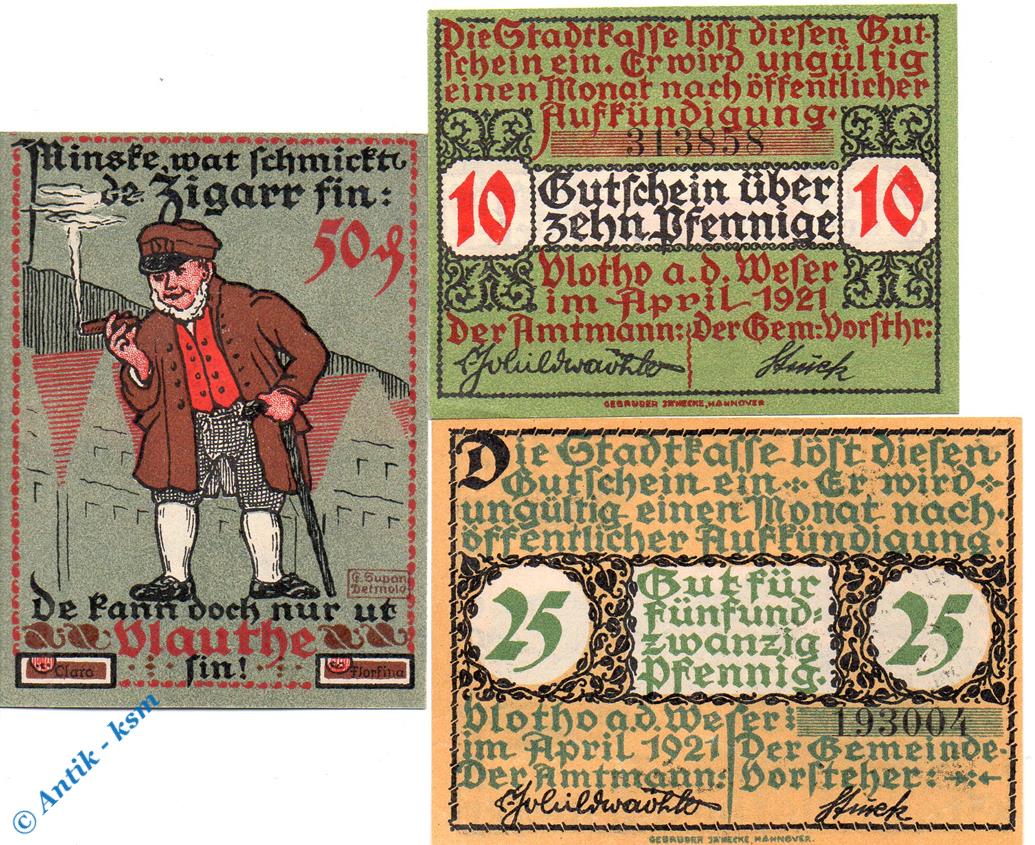 Minske, wat schmickt
de Zigarr fin:
50 ₰
G. Supan
Detmold
De kann doch nur ut
Vlauthe
sin!
Clara
Fiorfina
© Antik - ksm
Die Stadtkasse löst diesen Gut-
schein ein. Er wird ungültig
einen Monat nach öffentlicher
Aufkündigung.
313858
10
Gutschein über
zehn Pfennige
10
Vlotho a.d. Weser
im April 1921
Der Amtmann: Der Gem-Vorsthr:
Stuck
GEBRÜDER JÄNECKE, HANNOVER
Die Stadtkasse löst diesen
Gutschein ein. Er wird
ungültig einen Monat nach
öffentlicher Aufkündigung.
25
Gut für
fünfund-
zwanzig
Pfennig.
25
Vlotho a.d. Weser: 193004
im April 1921 Der Gemeinde-
Der Amtmann: Vorsteher:
Stuck
GEBRÜDER JÄNECKE, HANNOVER.